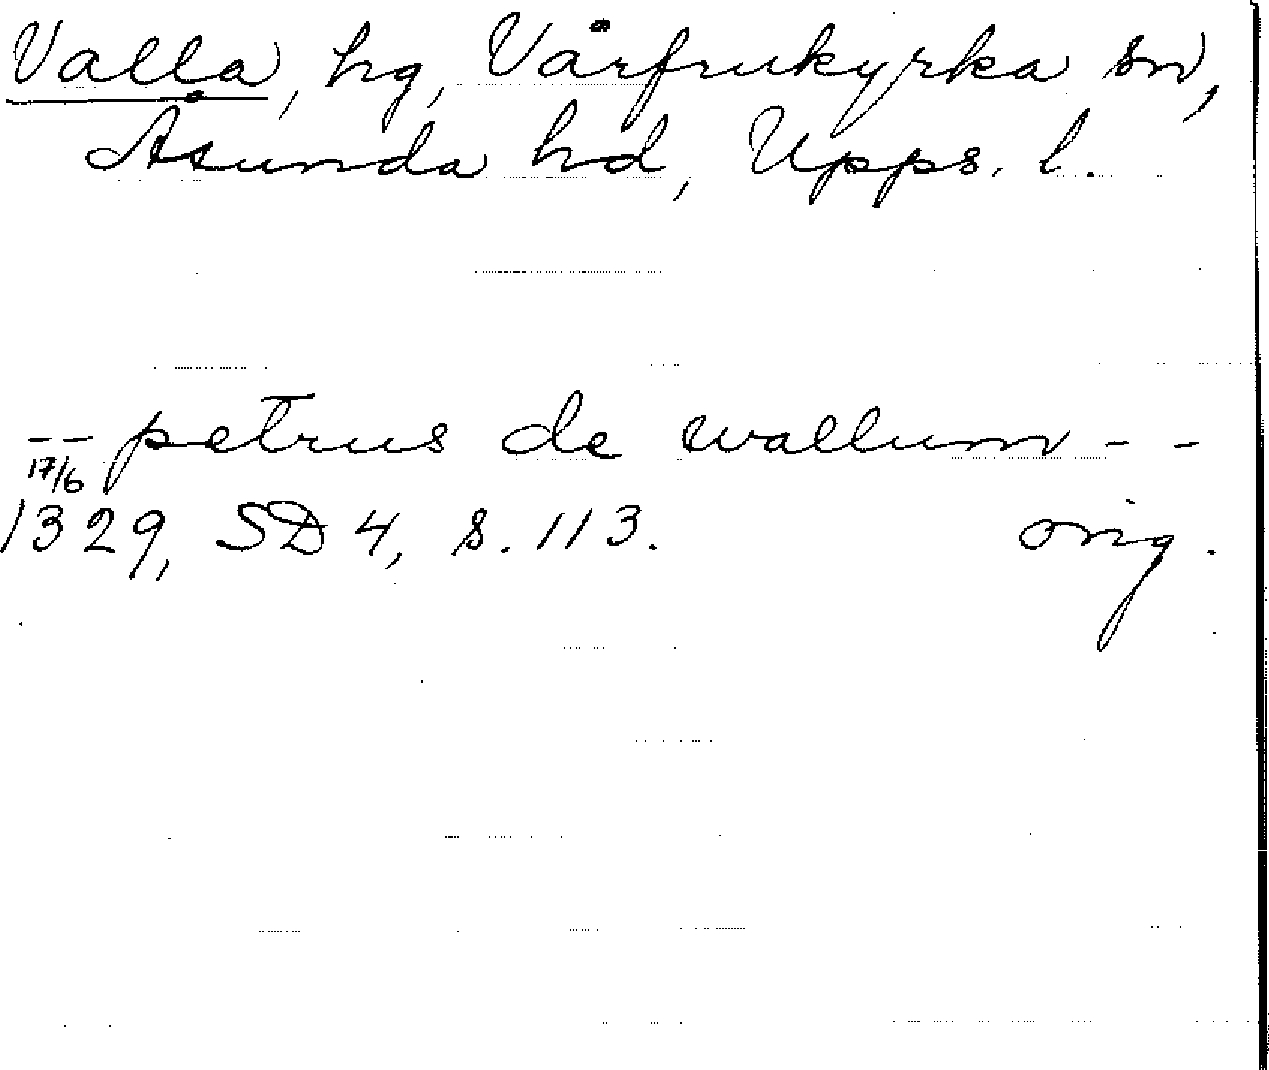 Valla, hg, Vårfrukyrka sn,
Åsunda hd, Upps. l.
-- petrus de wallum --
17/6
1329, SD 4, s. 113. orig.